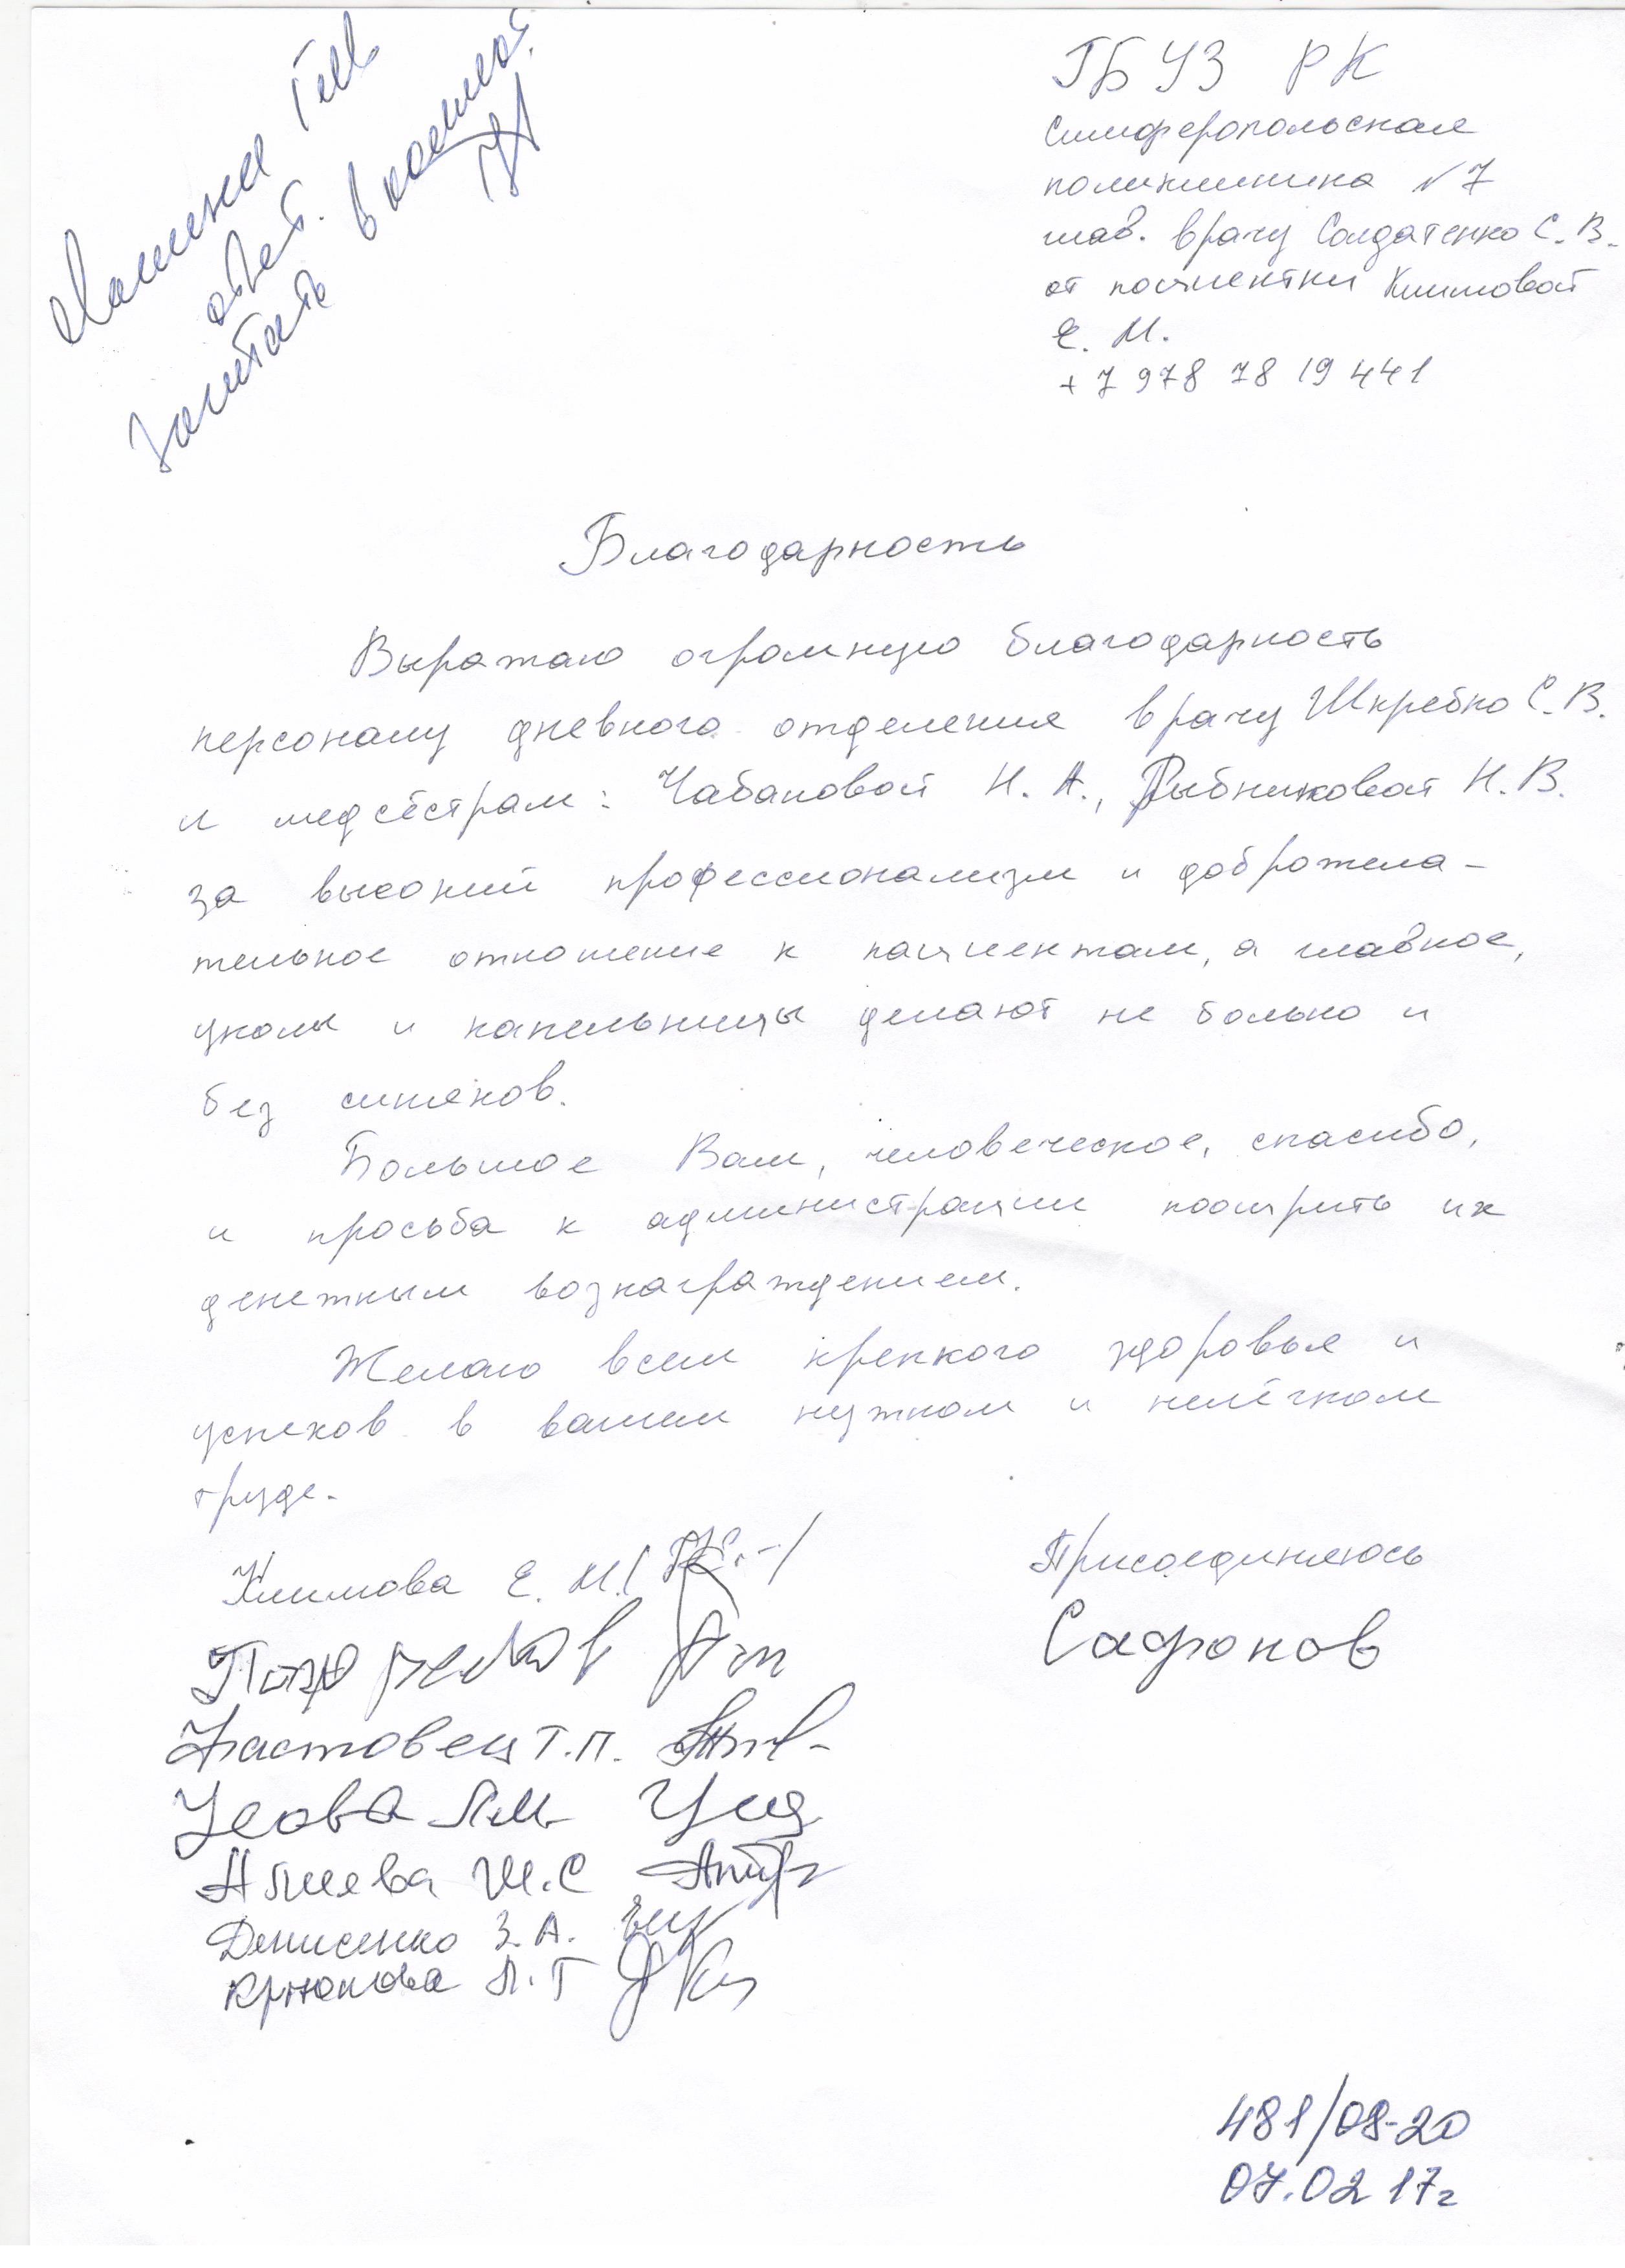 ГБУЗ РК
Симферопольская
поликлиника №7
глав. врачу Солдатенко С. В.
от пациентки Климовой
Е. М.
+7 978 78 19 441
ответ.
Зачитать
Благодарность
Выражаю огромную благодарность
персоналу дневного отделения врачу Шкребко С. В.
и медсёстрам: Чабановой Н. А., Рыбниковой Н. В.
за высокий профессионализм и доброжела-
тельное отношение к пациентам, а главное,
уколы и капельницы делают не больно и
без синяков.
Большое Вам, человеческое, спасибо,
и просьба к администрации поощрить их
денежным вознаграждением.
Желаю всем крепкого здоровья и
успехов в вашем нужном и нелёгком
труде.
Климова Е. М.
Присоединяюсь
Сафонов
Т.П.
Усова Л.М.
Алиева Ш.С
Денисенко З.А.
Крюкова Л.Г
481/08-20
07.02 17г